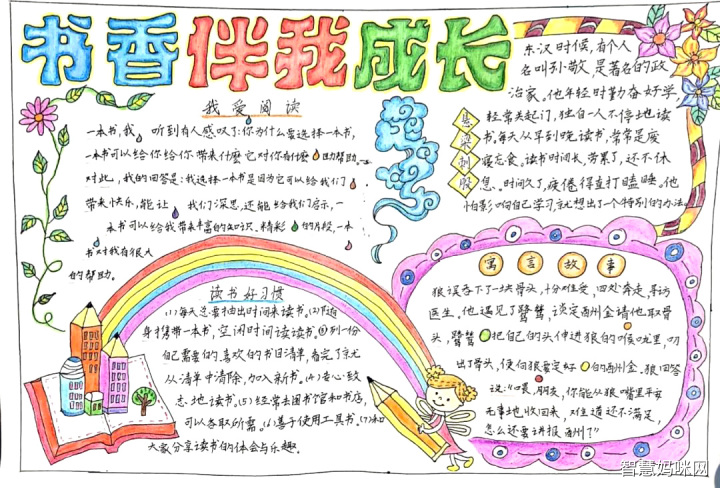 书香伴我成长
我爱阅读
一本书,我 听到有人感叹了:你为什么要选择一本书,
一本书可以给你给你带来什麽它对你有什麽 助帮助。
对此,我的回答是:我选择一本书是因为它可以给我们
带来快乐,能让 我们深思,还能给我们启示,一
本书可以给我带来丰富的知识.精彩 的片段,一本
书对我有很大
的帮助。
东汉时候,有个人
名叫孙敬,是著名的政
治家。他年轻时勤奋好学
悬梁刺股
经常关起门,独自一人不停地读
书,每天从早到晚读书,常常是废
寝忘食。读书时间长,劳累了,还不休
息。时间久了,疲倦得直打瞌睡。他
怕影响自己学习,就想出了个特别的办法
读书好习惯
(1)每天总要抽出时间来读书。(2)随
身携带一本书,空闲时间读读书。(3)列一份
自己需要的,喜欢的书目清单,看完了就
从清单中清除,加入新书。(4)专心致
志地读书。(5)经常去图书馆和书店,
可以各取所需。(6)善于使用工具书。(7)和
大家分享读书的体会与乐趣。
寓言故事
狼误吞下了一块骨头,十分难受,四处奔走,寻访
医生。他遇见了鹭鸶,谈定酬金请他取骨
头,鹭鸶 把自己的头伸进狼的喉咙里,叼
出了骨头,便向狼要定好 的酬金。狼回答
说:“喂,朋友,你能从狼嘴里平安
无事地收回头,难道还不满足,
怎么还要讲报酬?”
智慧妈咪网